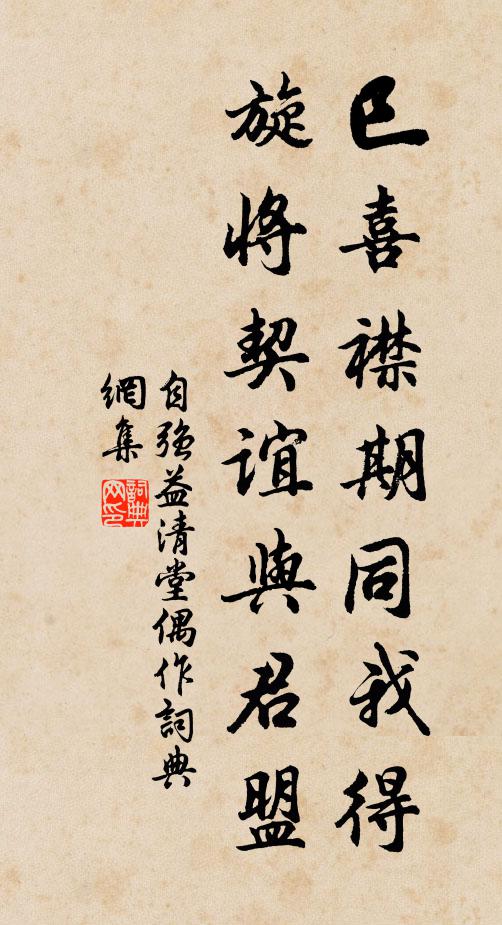 已喜襟期同我得
旋將契誼與君盟
自強益清堂偶作詞典
網集
詞典
网印